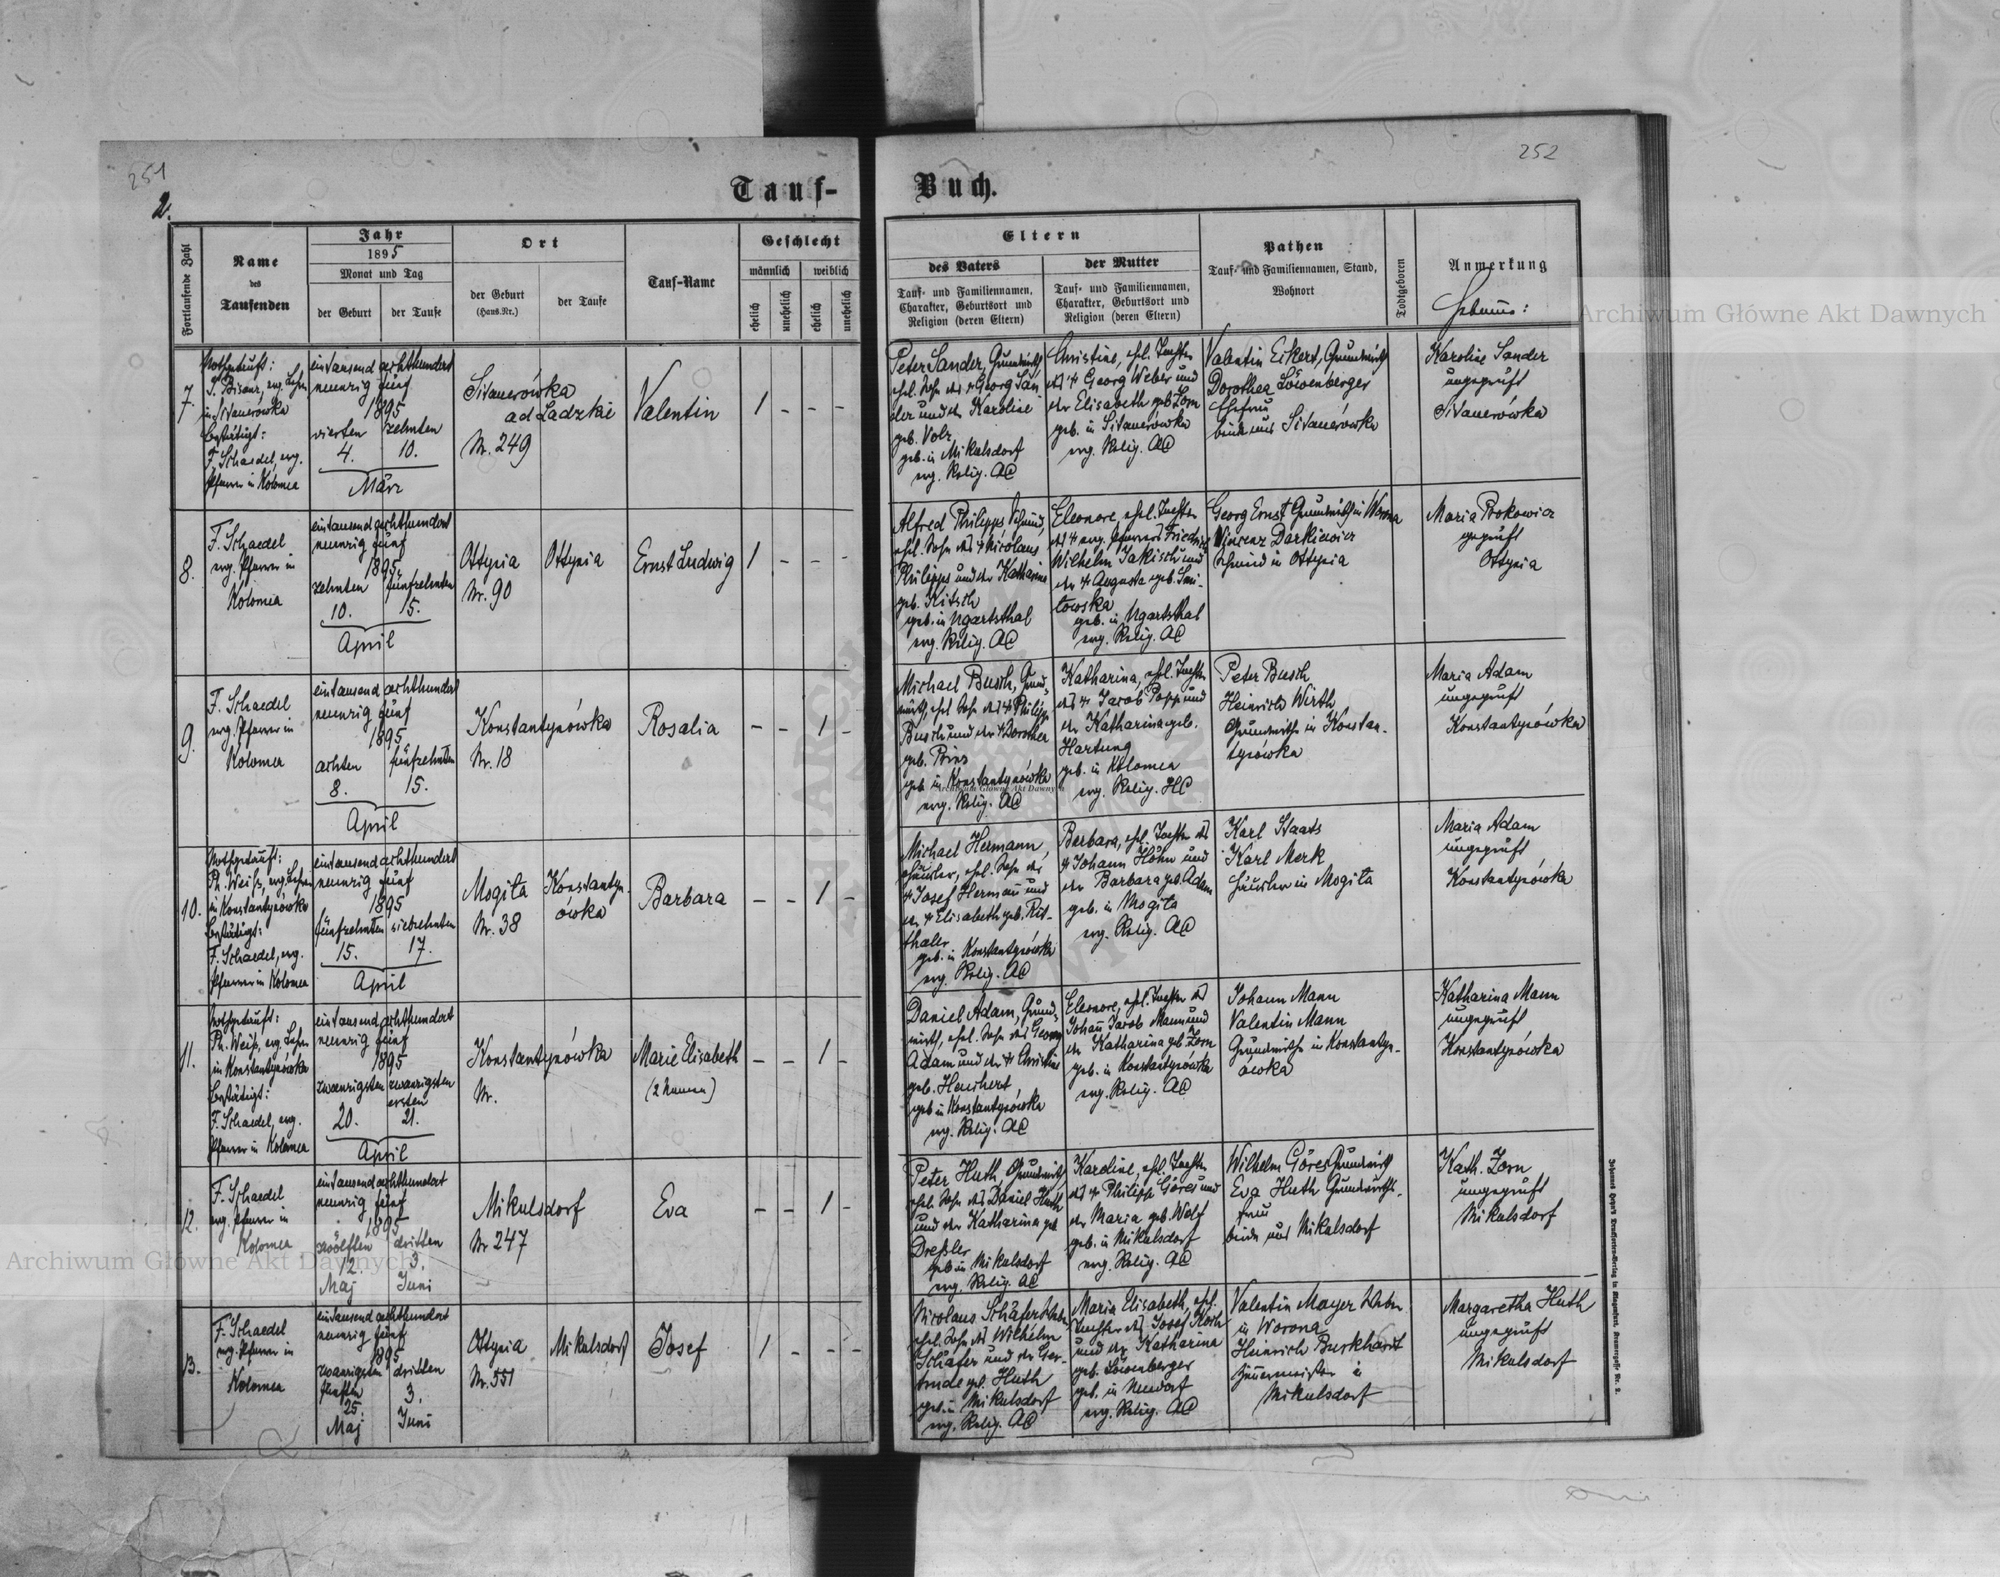 251
252
2.
Tauf-Buch.
Fortlaufende Zahl
Name
des
Taufenden
Jahr
1895
Monat und Tag
der Geburt
der Taufe
Ort
der Geburt
(Haus.Nr.)
der Taufe
Tauf-Name
Geschlecht
männlich
weiblich
ehelich
unehelich
ehelich
unehelich
Eltern
des Vaters
Tauf- und Familiennamen,
Charakter, Geburtsort und
Religion (deren Eltern)
der Mutter
Tauf- und Familiennamen,
Charakter, Geburtsort und
Religion (deren Eltern)
Pathen
Tauf- und Familiennamen, Stand,
Wohnort
Todtgeboren
Anmerkung
Hebamme:
7.
Nothgetauft:
evg. Lehrer
in Sitauerówka
bestätigt:
F. Schaedel, evg.
Pfarrer in Kolomea
eintausend achthundert
neunzig fünf
1895
vierten zehnten
4. 10.
März
Sitauerówka
ad Ladzkie
Nr. 249
Valentin
1 - - -
Peter Sander, Grundwirth,
ehel. Sohn des † Georg San-
der und der Karoline
geb. Volz
geb. in Mikulsdorf
evg. Relig. AC
Christine, ehel. Tochter
des † Georg Weber und
der Elisabeth geb. Zorn
geb. in Sitauerówka
evg. Relig. AC
Valentin Eckert, Grundwirth
Dorothea Löwenberger
Ehefrau
beide aus Sitauerówka
Karoline Sander
ungeprüft
Sitauerówka
8.
F. Schaedel
evg. Pfarrer in
Kolomea
eintausend achthundert
neunzig fünf
1895
zehnten fünfzehnten
10. 15.
April
Ottynia
Nr. 90
Ottynia
Ernst Ludwig
1 - - -
Alfred Philipps Schmied,
ehel. Sohn des † Nicolaus
Philipps und der Katharina
geb. Kitsch
geb. in Ugartsthal
evg. Relig. AC
Eleonore, ehel. Tochter
des † evg. Pfarrers Friedrich
Wilhelm Jakisch und
der † Auguste geb.
towska
geb. in Ugartsthal
evg. Relig. AC
Georg Ernst Grundwirth in Worona
Vincenz Darkiewicz
Schmied in Ottynia
Maria Prokowicz
geprüft
Ottynia
9.
F. Schaedel
evg. Pfarrer in
Kolomea
eintausend achthundert
neunzig fünf
1895
achten fünfzehnten
8. 15.
April
Konstantynówka
Nr. 18
Rosalia
- - 1 -
Michael Busch, Grund-
wirth, ehel. Sohn des † Philipp
Busch und der † Dorothea
geb. Prins
geb. in Konstantynówka
evg. Relig. AC
Katharina, ehel. Tochter
des † Jacob Popp und
der Katharina geb.
Hartung
geb. in Kolomea
evg. Relig. HC
Peter Busch
Heinrich Wirth
Grundwirthe in Konstan-
tynówka
Maria Adam
ungeprüft
Konstantynówka
10.
Nothgetauft:
Ph. Weiss, evg. Lehrer
in Konstantynówka
bestätigt:
F. Schaedel, evg.
Pfarrer in Kolomea
eintausend achthundert
neunzig fünf
1895
fünfzehnten siebzehnten
15. 17.
April
Mogiła
Nr. 38
Konstantyn-
ówka
Barbara
- - 1 -
Michael Hermann,
Häusler, ehel. Sohn des
† Josef Hermann und
der † Elisabeth geb. Rit-
thaler
geb. in Konstantynówka
evg. Relig. AC
Barbara, ehel. Tochter des
† Johann Höhn und
der Barbara geb. Adam
geb. in Mogiła
evg. Relig. AC
Karl Staats
Karl Merk
Häusler in Mogiła
Maria Adam
ungeprüft
Konstantynówka
11.
Nothgetauft:
Ph. Weiß, evg. Lehrer
in Konstantynówka
bestätigt:
F. Schaedel, evg.
Pfarrer in Kolomea
eintausend achthundert
neunzig fünf
1895
zwanzigsten zwanzigsten
ersten
20. 21.
April
Konstantynówka
Nr.
Marie Elisabeth
(2 Namen)
- - 1 -
Daniel Adam, Grund-
wirth, ehel. Sohn des Georg
Adam und der † Christine
geb. Heuchert
geb. in Konstantynówka
evg. Relig. AC
Eleonore, ehel. Tochter des
Johann Jacob Mann und
der Katharina geb. Zorn
geb. in Konstantynówka
evg. Relig. AC
Johann Mann
Valentin Mann
Grundwirthe in Konstantyn-
ówka
Katharina Mann
ungeprüft
Konstantynówka
12.
F. Schaedel
evg. Pfarrer in
Kolomea
eintausend achthundert
neunzig fünf
1895
zwölften dritten
12. 3.
Maj Juni
Mikulsdorf
Nr 247
Eva
- - 1 -
Peter Huth, Grundwirth,
ehel. Sohn des Daniel Huth
und der Katharina geb.
Dreßler
geb. in Mikulsdorf
evg. Relig. AC
Karoline, ehel. Tochter
des † Philipp Göres und
der Maria geb. Wolf
geb. in Mikulsdorf
evg. Relig. AC
Wilhelm Göres Grundwirth
Eva Huth Grundwirths-
frau
beide aus Mikulsdorf
Kath. Zorn
ungeprüft
Mikulsdorf
13.
F. Schaedel
evg. Pfarrer in
Kolomea
eintausend achthundert
neunzig fünf
1895
zwanzigsten dritten
fünften 3.
25.
Maj Juni
Ottynia
Nr. 551
Mikulsdorf
Josef
1 - - -
Nicolaus Schäfer
ehel. Sohn des Wilhelm
Schäfer und der Ger-
trude geb. Huth
geb. in Mikulsdorf
evg. Relig. AC
Maria Elisabeth, ehel.
Tochter des Josef Koch
und der Katharina
geb. Löwenberger
geb. in Neudorf
evg. Relig. AC
Valentin Mayer
in Worona
Heinrich Burkhardt
in
Mikulsdorf
Margaretha Huth
ungeprüft
Mikulsdorf
Archiwum Główne Akt Dawnych
Archiwum Główne Akt Dawnych
Archiwum Główne Akt Dawnych